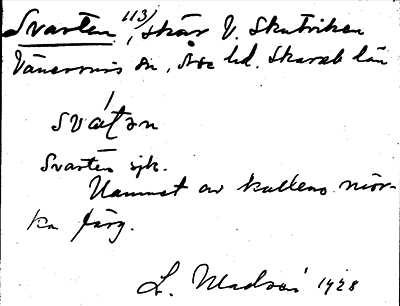 Svarten, 113) skär V. Skutviken
Vänersnäs sn, Åse hd. Skarab län
svátən
Svarten sjk.
Namnet av hällens mör-
ka färg.
L. Madsén 1928